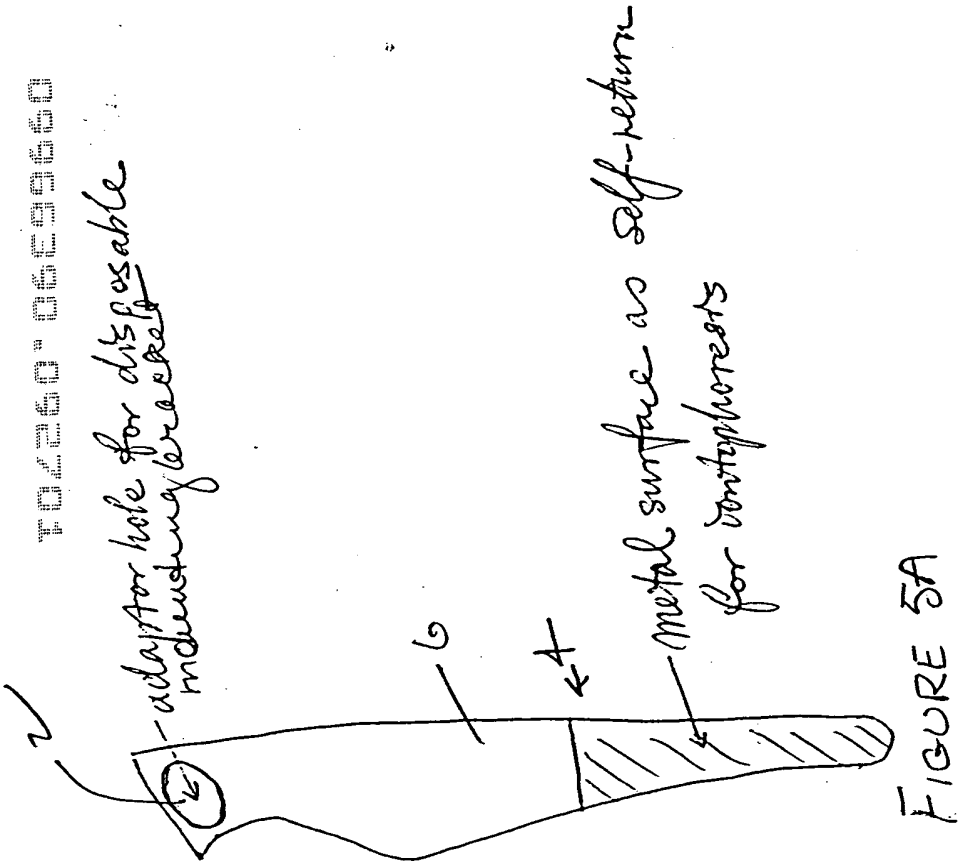 09965390.092701
2
adaptor hole for disposable
indenting bracket
6
4
metal surface as self-return
for iontophoresis
FIGURE 5A